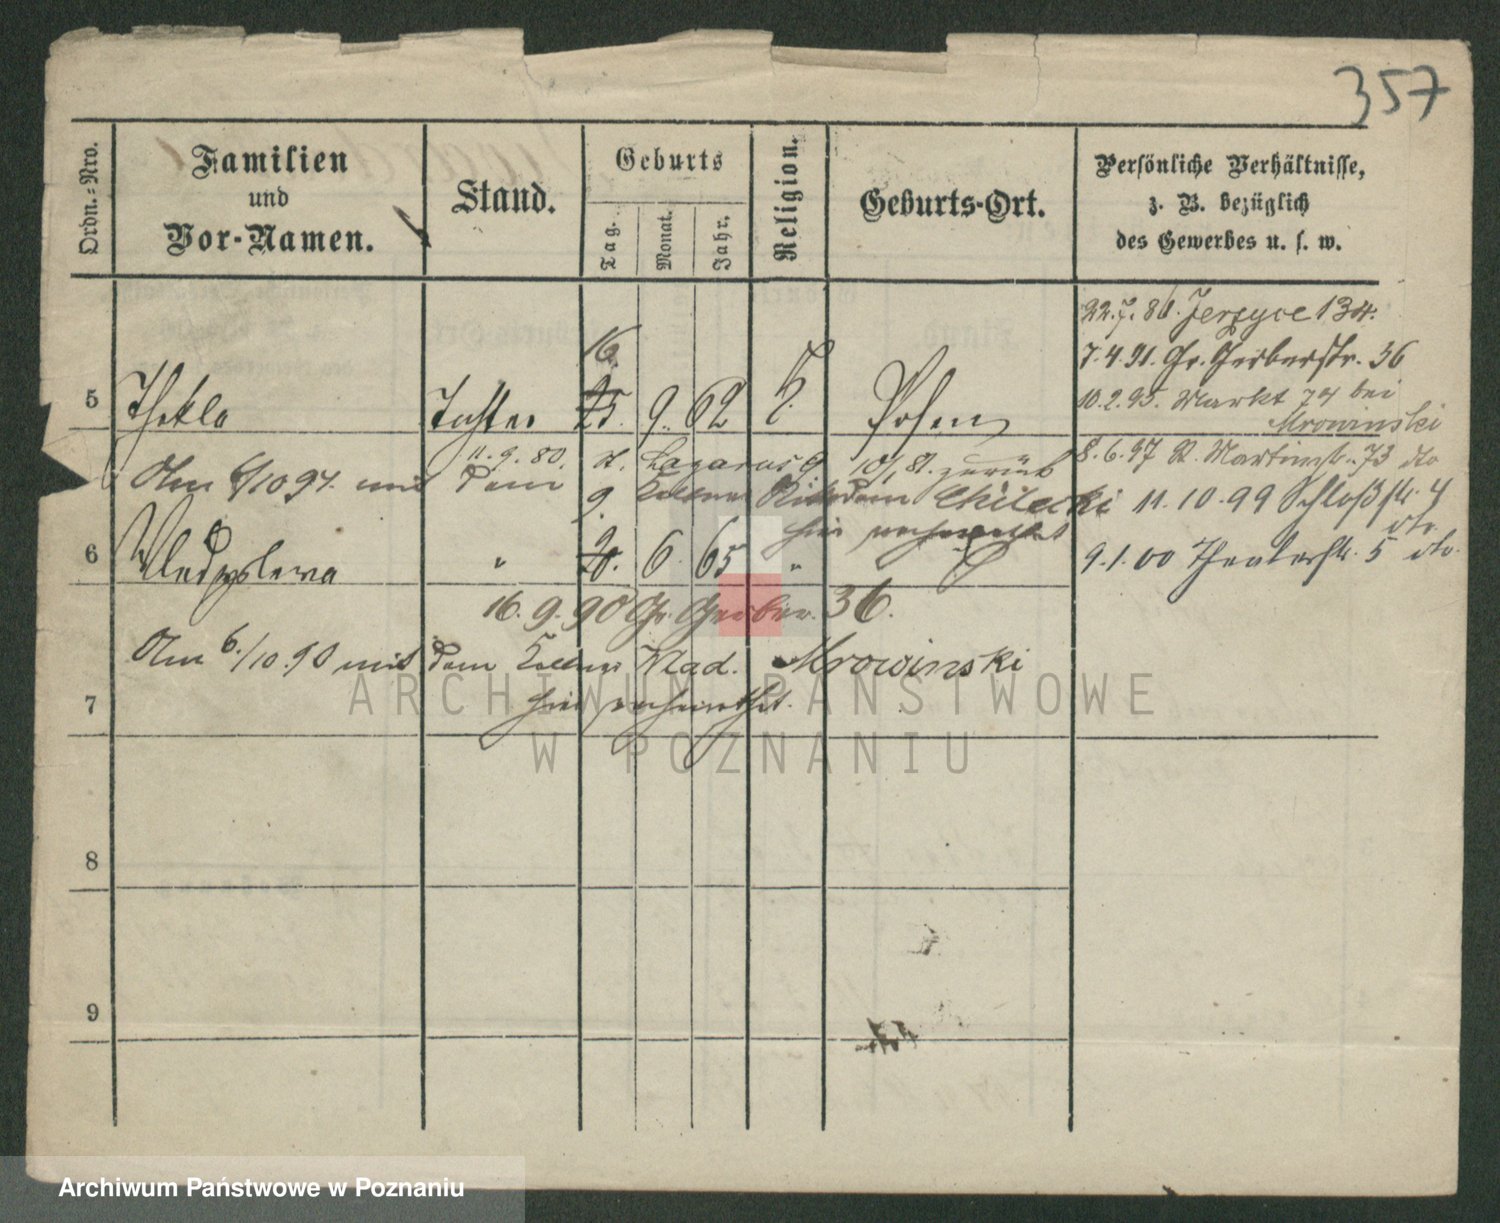 357
Ordn.-Nro.
Familien
und
Vor-Namen.
Stand.
Geburts
Tag.
Monat.
Jahr.
Religion.
Geburts-Ort.
Persönliche Verhältnisse,
z. B. bezüglich
des Gewerbes u. s. w.
22.7.86. Jerzyce 134.
7.4.91. Gr. Gerberstr. 36
10.2.95. Markt 74 bei
Mrowinski
16.
5 Thekla Tochter 25. 9. 62 Posen
11.9.80. St. Lazarus 9 10/81. zurück
8.6.97 St. Martinstr. 73 dto
Am 6/10 97. mit dem Kellner Chilecki
hier verheirathet
11.10.99 Schloßstr. 4
dto
9.
6 Wladyslawa " 20. 6. 65 "
9.1.00 Theaterstr. 5 dto.
16.9.90 Gr. Gerber. 36.
Am 6./10.90 mit dem Kellner Wlad. Mrowinski
hier verheirathet.
7
8
9
ARCHIWUM PAŃSTWOWE
W POZNANIU
Archiwum Państwowe w Poznaniu